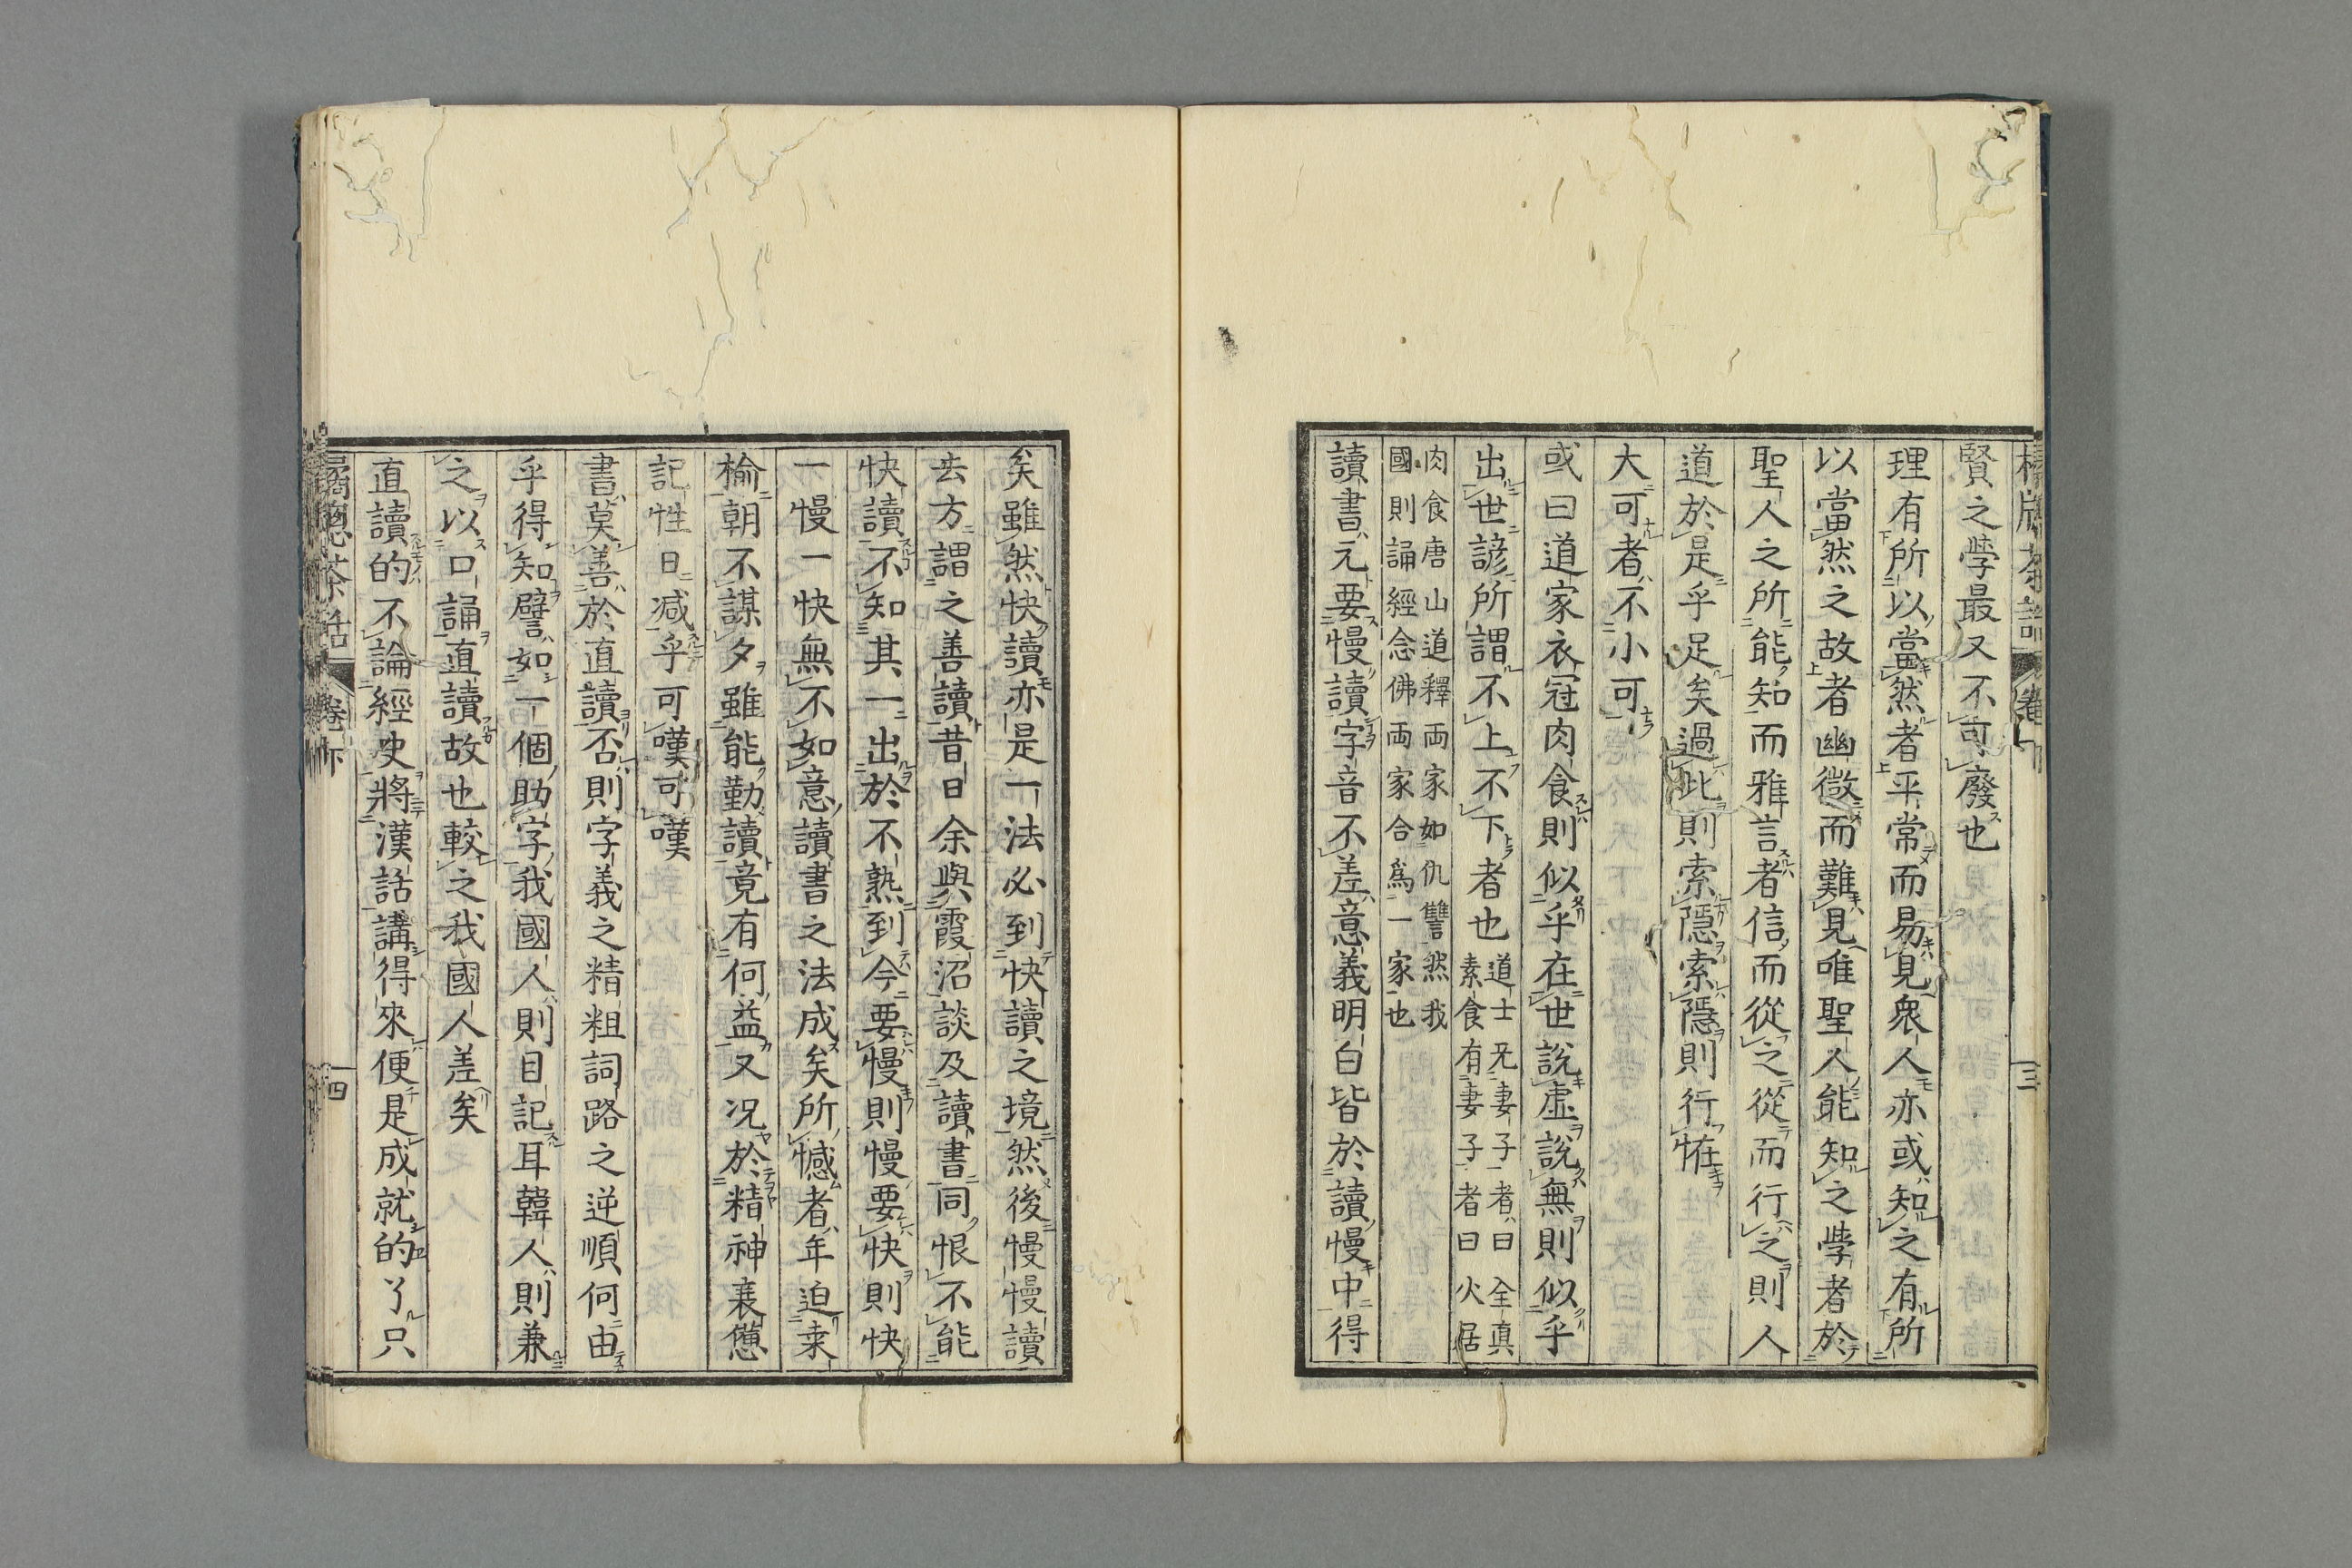 賢之學最又不可廢也
理有所以當然者平常而易見衆人亦或知之有所
以當然之故者幽微而難見唯聖人能知之學者於
聖人之所能知而雅言者信而從之從而行之則人
道於是乎足矣過此則索隱索隱則行恠
大可者不小可
或曰道家衣冠肉食則似乎在世說虛說無則似乎
出世諺所謂不上不下者也
道士旡妻子者曰全真
素食有妻子者曰火居
肉食唐山道釋両家如仇讐然我
國則誦經念佛両家合爲一家也
讀書元要慢讀字音不差意義明白皆於讀慢中得
矣雖然快讀亦是一法必到快讀之境然後慢慢讀
去方謂之善讀昔日余與霞沼談及讀書同恨不能
快讀不知其一出於不熟到今要慢則慢要快則快
一慢一快無不如意讀書之法成矣所憾者年迫桒
榆朝不謀夕雖能勤讀竟有何益又况於精神衰憊
記性日减乎可嘆可嘆
書莫善於直讀否則字義之精粗詞路之逆順何由
乎得知譬如一個助字我國人則目記耳韓人則兼
之以口誦直讀故也較之我國人差矣
直讀的不論經史將漢話講得來便是成就的了只
卷下
四
三